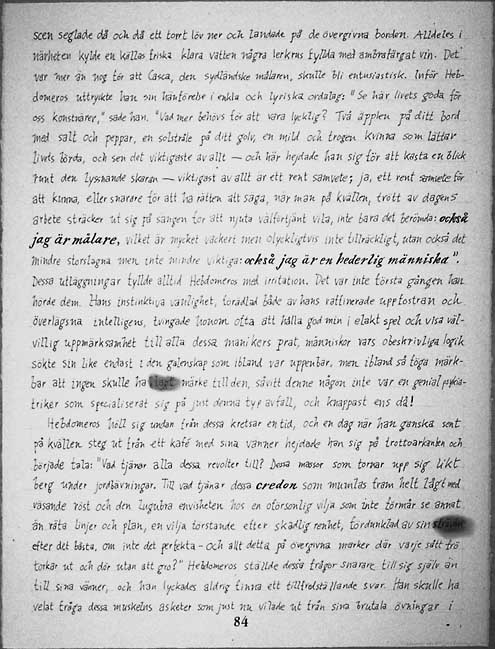 scen seglade då och då ett torrt löv ner och landade på de övergivna borden. Alldeles i
närheten kylde en källas friska klara vatten några lerkrus fyllda med ambrafärgat vin. Det
var mer än nog för att Casca, den sydländske målaren, skulle bli entusiastisk. Inför Heb-
domeros uttryckte han sin hänförelse i enkla och lyriska ordalag: "Se här livets goda för
oss konstnärer," sade han. "Vad mer behövs för att vara lycklig? Två äpplen på ditt bord
med salt och peppar, en solstråle på ditt golv, en mild och trogen kvinna som lättar
livets börda, och sen det viktigaste av allt — och här hejdade han sig för att kasta en blick
runt den lyssnande skaran — viktigast av allt är ett rent samvete; ja, ett rent samvete för
att kunna, eller snarare för att ha rätten att säga, när man på kvällen, trött av dagens
arbete sträcker ut sig på sängen för att njuta välförtjänt vila, inte bara det berömda: också
jag är målare, vilket är mycket vackert men olyckligtvis inte tillräckligt, utan också det
mindre storslagna men inte mindre viktiga: också jag är en hederlig människa".
Dessa utläggningar fyllde alltid Hebdomeros med irritation. Det var inte första gången han
hörde dem. Hans instinktiva vänlighet, förädlad både av hans raffinerade uppfostran och
överlägsna intelligens, tvingade honom ofta att hålla god min i elakt spel och visa väl-
villig uppmärksamhet till alla dessa manikers prat, människor vars obeskrivliga logik
sökte sin like endast i den galenskap som ibland var uppenbar, men ibland så föga märk-
bar att ingen skulle ha lagt märke till den, såvitt denne någon inte var en genial psykia-
triker som specialiserat sig på just denna typ av fall, och knappast ens då!
Hebdomeros höll sig undan från dessa kretsar en tid, och en dag när han ganska sent
på kvällen steg ut från ett kafé med sina vänner hejdade han sig på trottoarkanten och
började tala: "Vad tjänar alla dessa revolter till? Dessa massor som tornar upp sig likt
berg under jordbävningar. Till vad tjänar dessa credon som mumlas fram helt lågt med
väsande röst och den lugubra envisheten hos en oförsonlig vilja som inte förmår se annat
än räta linjer och plan, en vilja törstande efter skadlig renhet, fördunklad av sin strävan
efter det bästa, om inte det perfekta – och allt detta på övergivna marker där varje sått frö
torkar ut och dör utan att gro?" Hebdomeros ställde dessa frågor snarare till sig själv än
till sina vänner, och han lyckades aldrig finna ett tillfredsställande svar. Han skulle ha
velat fråga dessa muskelns asketer som just nu vilade ut från sina brutala övningar i
84